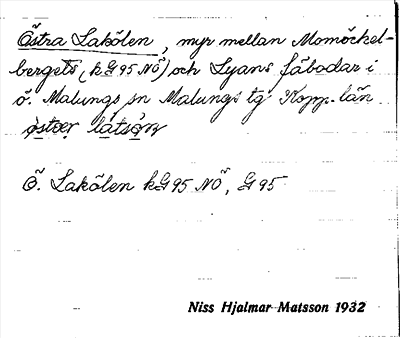 Östra Lakölen, myr mellan Momöckel-
berget (kG95NÖ) och Lyans fäbodar i
ö. Malungs sn Malungs tg Kopp. län
Ö. Lakölen kG95NÖ, G95
Niss Hjalmar Matsson 1932